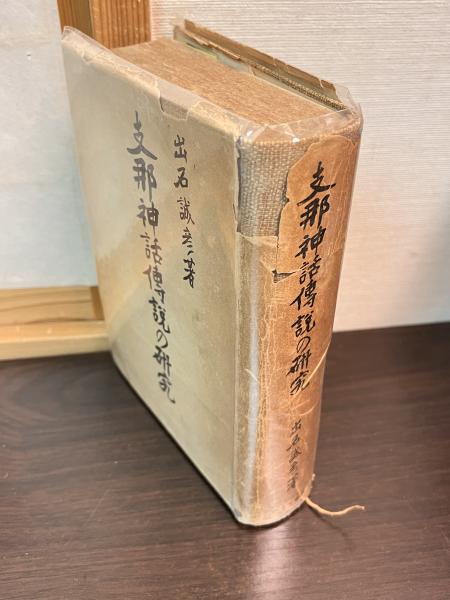 出石誠彦著
支那神話傳説の研究
支那神話傳説の研究
出石誠彦著